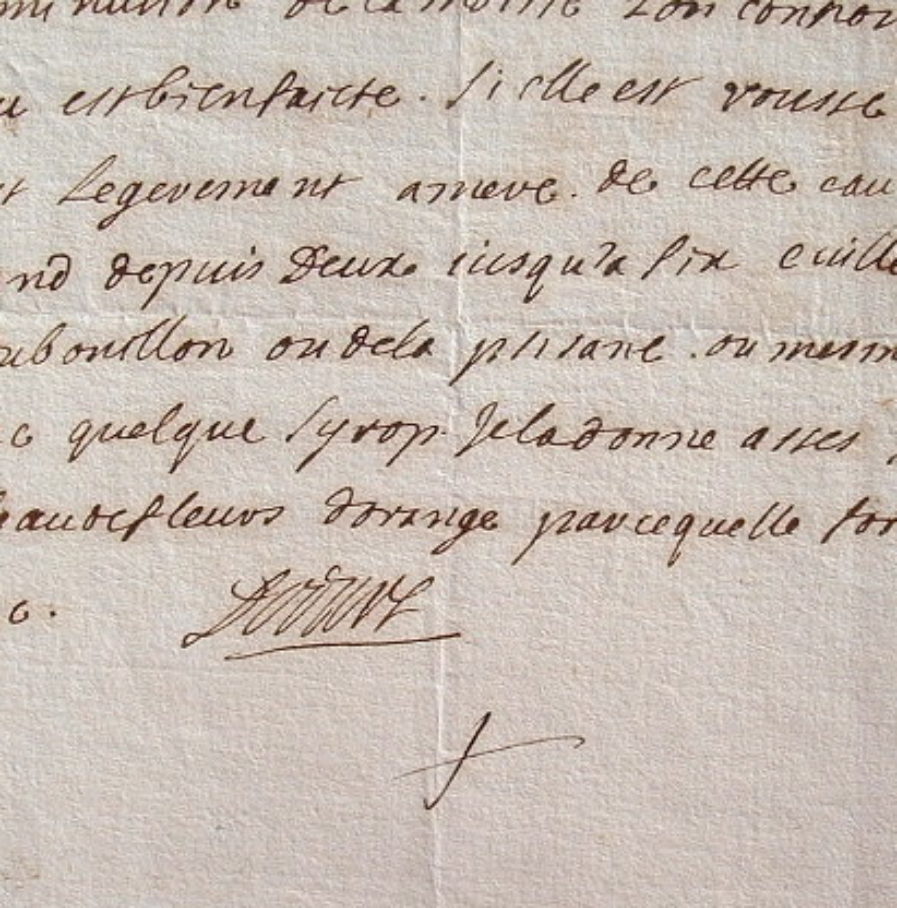 minution de la moitie Lon connoi
u est bien faicte. Si elle est rousse
t Legerement amere. de cette eau
nd depuis Deux jusqu'a six cuille
u bouillon ou de la ptisane. ou mesm
c quelque syrop. Je la donne asses
eau de fleurs dorange parcequelle for
c.